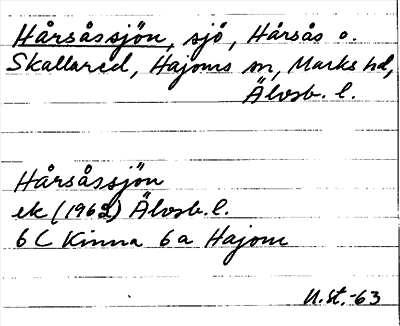 Hårsåssjön, sjö, Hårsås o.
Skallared, Hajoms sn, Marks hd,
Älvsb. l.
Hårsåssjön
ek (1962) Älvsb. l.
6C Kinna 6a Hajom
U.st.-63